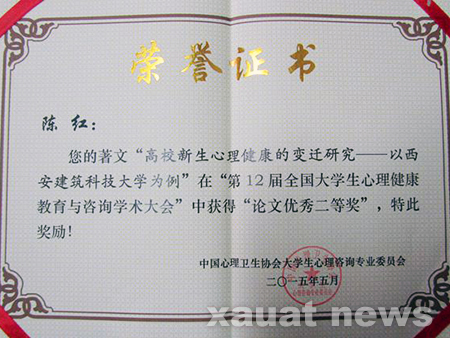 荣誉证书
陈红：
您的著文“高校新生心理健康的变迁研究——以西
安建筑科技大学为例”在“第12届全国大学生心理健康
教育与咨询学术大会”中获得“论文优秀二等奖”，特此
奖励！
中国心理卫生协会大学生心理咨询专业委员会
二〇一五年五月
xauat news